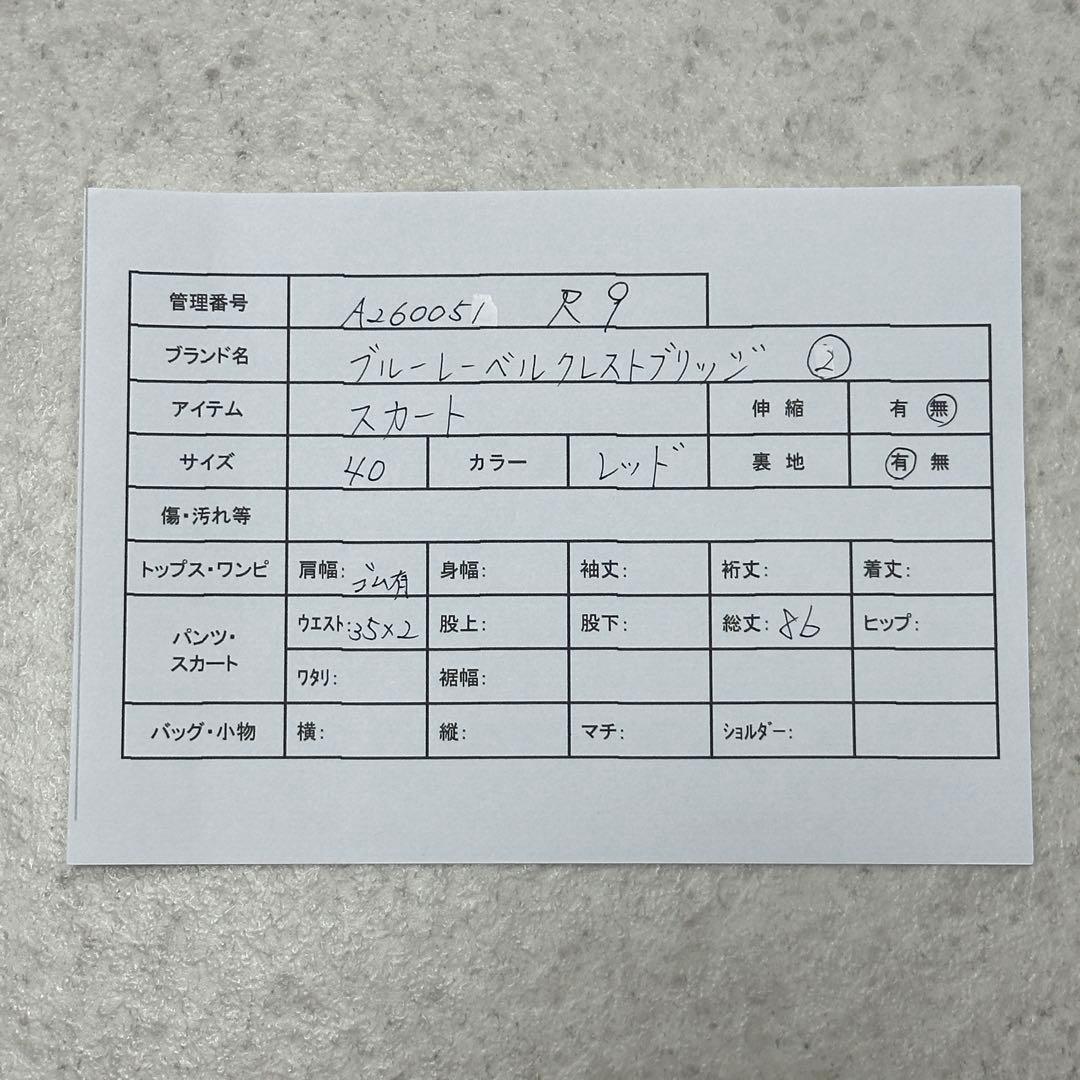 管理番号 A260051 R9
ブランド名 ブルーレーベルクレストブリッジ ②
アイテム スカート 伸縮 有 無
サイズ 40 カラー レッド 裏地 有 無
傷・汚れ等
トップス・ワンピ 肩幅: 身幅: 袖丈: 裄丈: 着丈:
ゴム有
パンツ・スカート ウエスト:35×2 股上: 股下: 総丈:86 ヒップ:
ワタリ: 裾幅:
バッグ・小物 横: 縦: マチ: ショルダー: